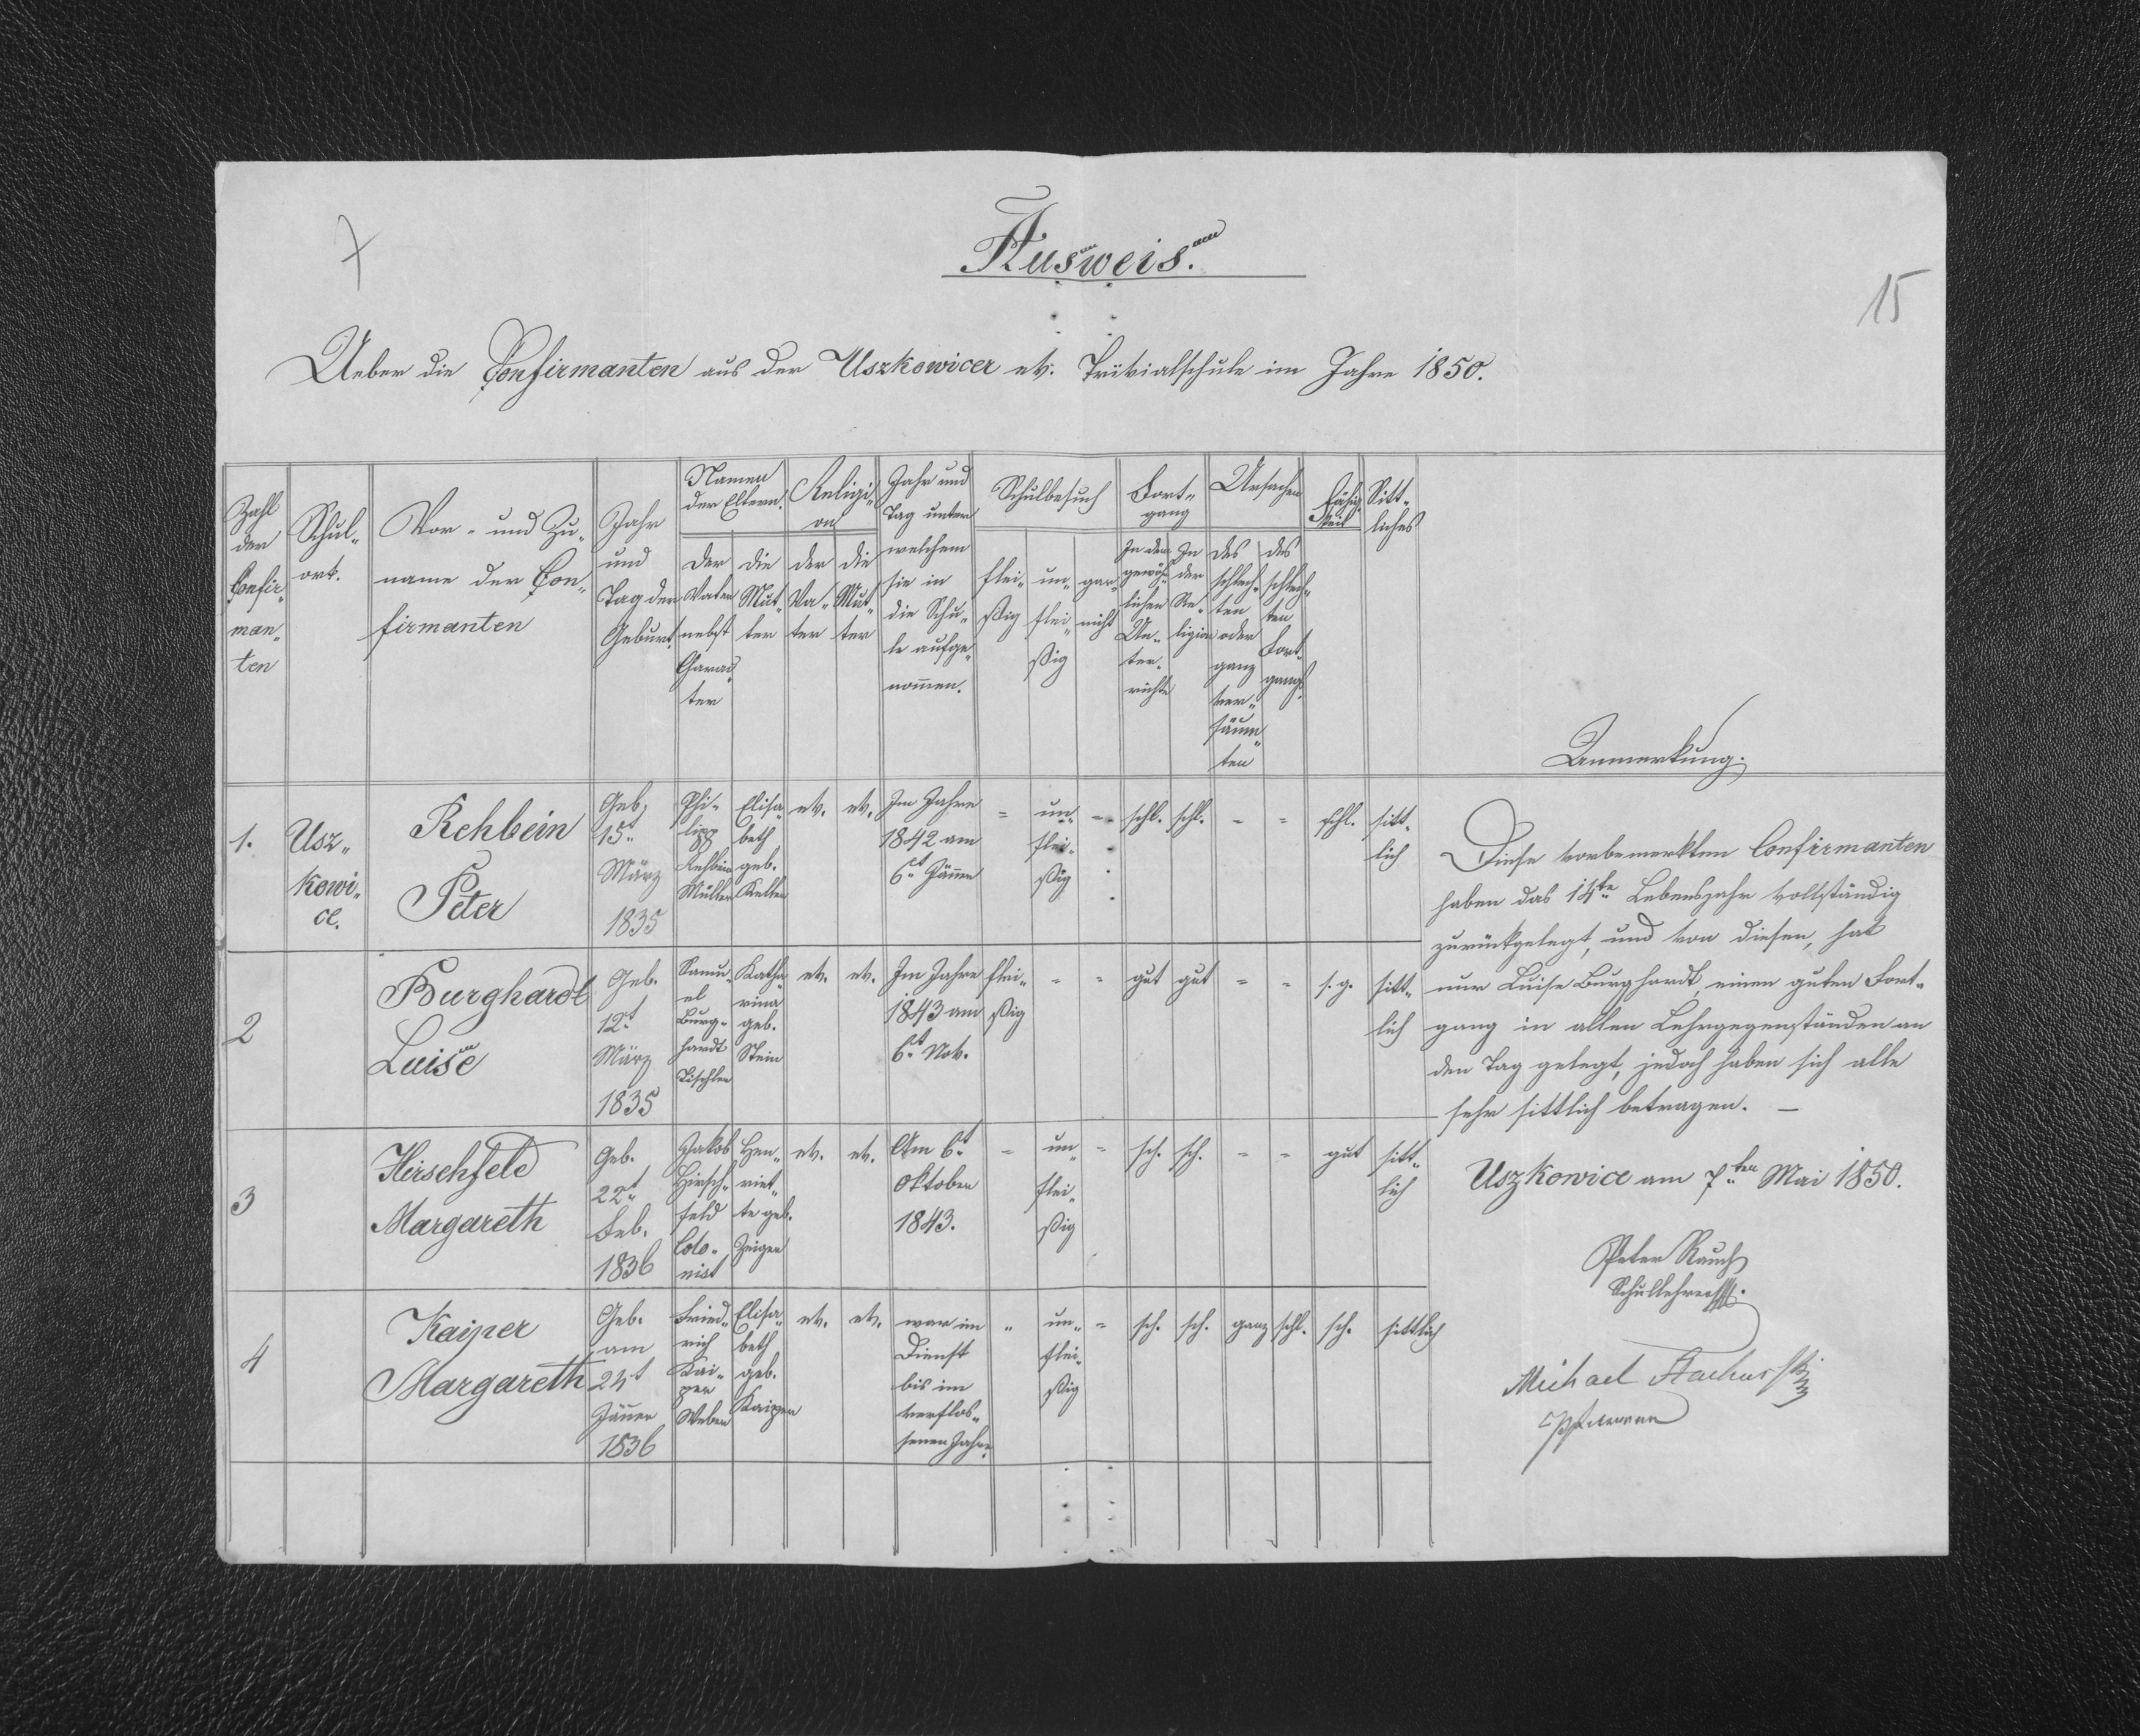 15
Ausweis.
Ueber die Confirmanten aus der Uszkowicer ev. Trivialschule im Jahre 1850.
Zahl
der
Confir-
man-
ten
Schul-
ort.
Vor- und Zu-
name der Con-
firmanten
Jahr
und
Tag der
Geburt.
Namen
der Eltern.
der
Vater
nebst
Charac-
ter
die
Mut-
ter
Religi-
on
der
Va-
ter
die
Mut-
ter
Jahr und
Tag unter
welchem
sie in
die Schu-
le aufge-
nommen.
Schulbesuch
flei-
ßig
un-
flei-
ßig
gar
nicht
Fort-
gang
In dem
gewöh-
lichen
Un-
ter-
richte
In
der
Re-
ligion
Ursachen
des
schlech-
ten
oder
ganz
ver-
säum-
ten
des
schlech-
ten
Fort-
gangs.
Fähig-
keit
Sitt-
liches
Anmerkung.
1.
Usz-
kowi-
ce.
Rehbein
Peter
Geb.
15t
März
1835
Phi-
lipp
Rehbein
Müller
Elisa-
beth
geb.
Keller
ev.
ev.
Im Jahre
1842 am
6t Jänner
-
un-
flei-
ßig
-
schl.
schl.
-
-
schl.
sitt-
lich
2
Burghardt
Luise
Geb.
12t
März
1835
Samu-
el
Burg-
hardt
Tischler
Katha-
rina
geb.
Stein
ev.
ev.
Im Jahre
1843 am
6t Nov.
flei-
ßig
-
-
gut
gut
-
-
s. g.
sitt-
lich
3
Hirschfeld
Margareth
Geb.
22t
Feb.
1836
Jakob
Hirsch-
feld
Colo-
nist
Hen-
riet-
te geb.
Zeiger
ev.
ev.
Am 6t
Oktober
1843.
-
un-
flei-
ßig
-
sch.
sch.
-
-
gut
sitt-
lich
4
Kaiper
Margareth
Geb.
am
24t
Jänner
1836
Fried-
rich
Kai-
per
Weber
Elisa-
beth
geb.
Kaiper
ev.
ev.
war im
Dienst
bis im
verflos-
senen Jahre.
-
un-
flei-
ßig
-
sch.
sch.
ganz
schl.
sch.
sittlich
Diese vorbemerkten Confirmanten
haben das 14te Lebensjahr vollständig
zurückgelegt, und von diesen, hat
nur Luise Burghardt einen guten Fort-
gang in allen Lehrgegenständen an
den Tag gelegt, jedoch haben sich alle
sehr sittlich betragen. –
Uszkowice am 7ten Mai 1850.
Peter Rauch
Schullehrer
Michael